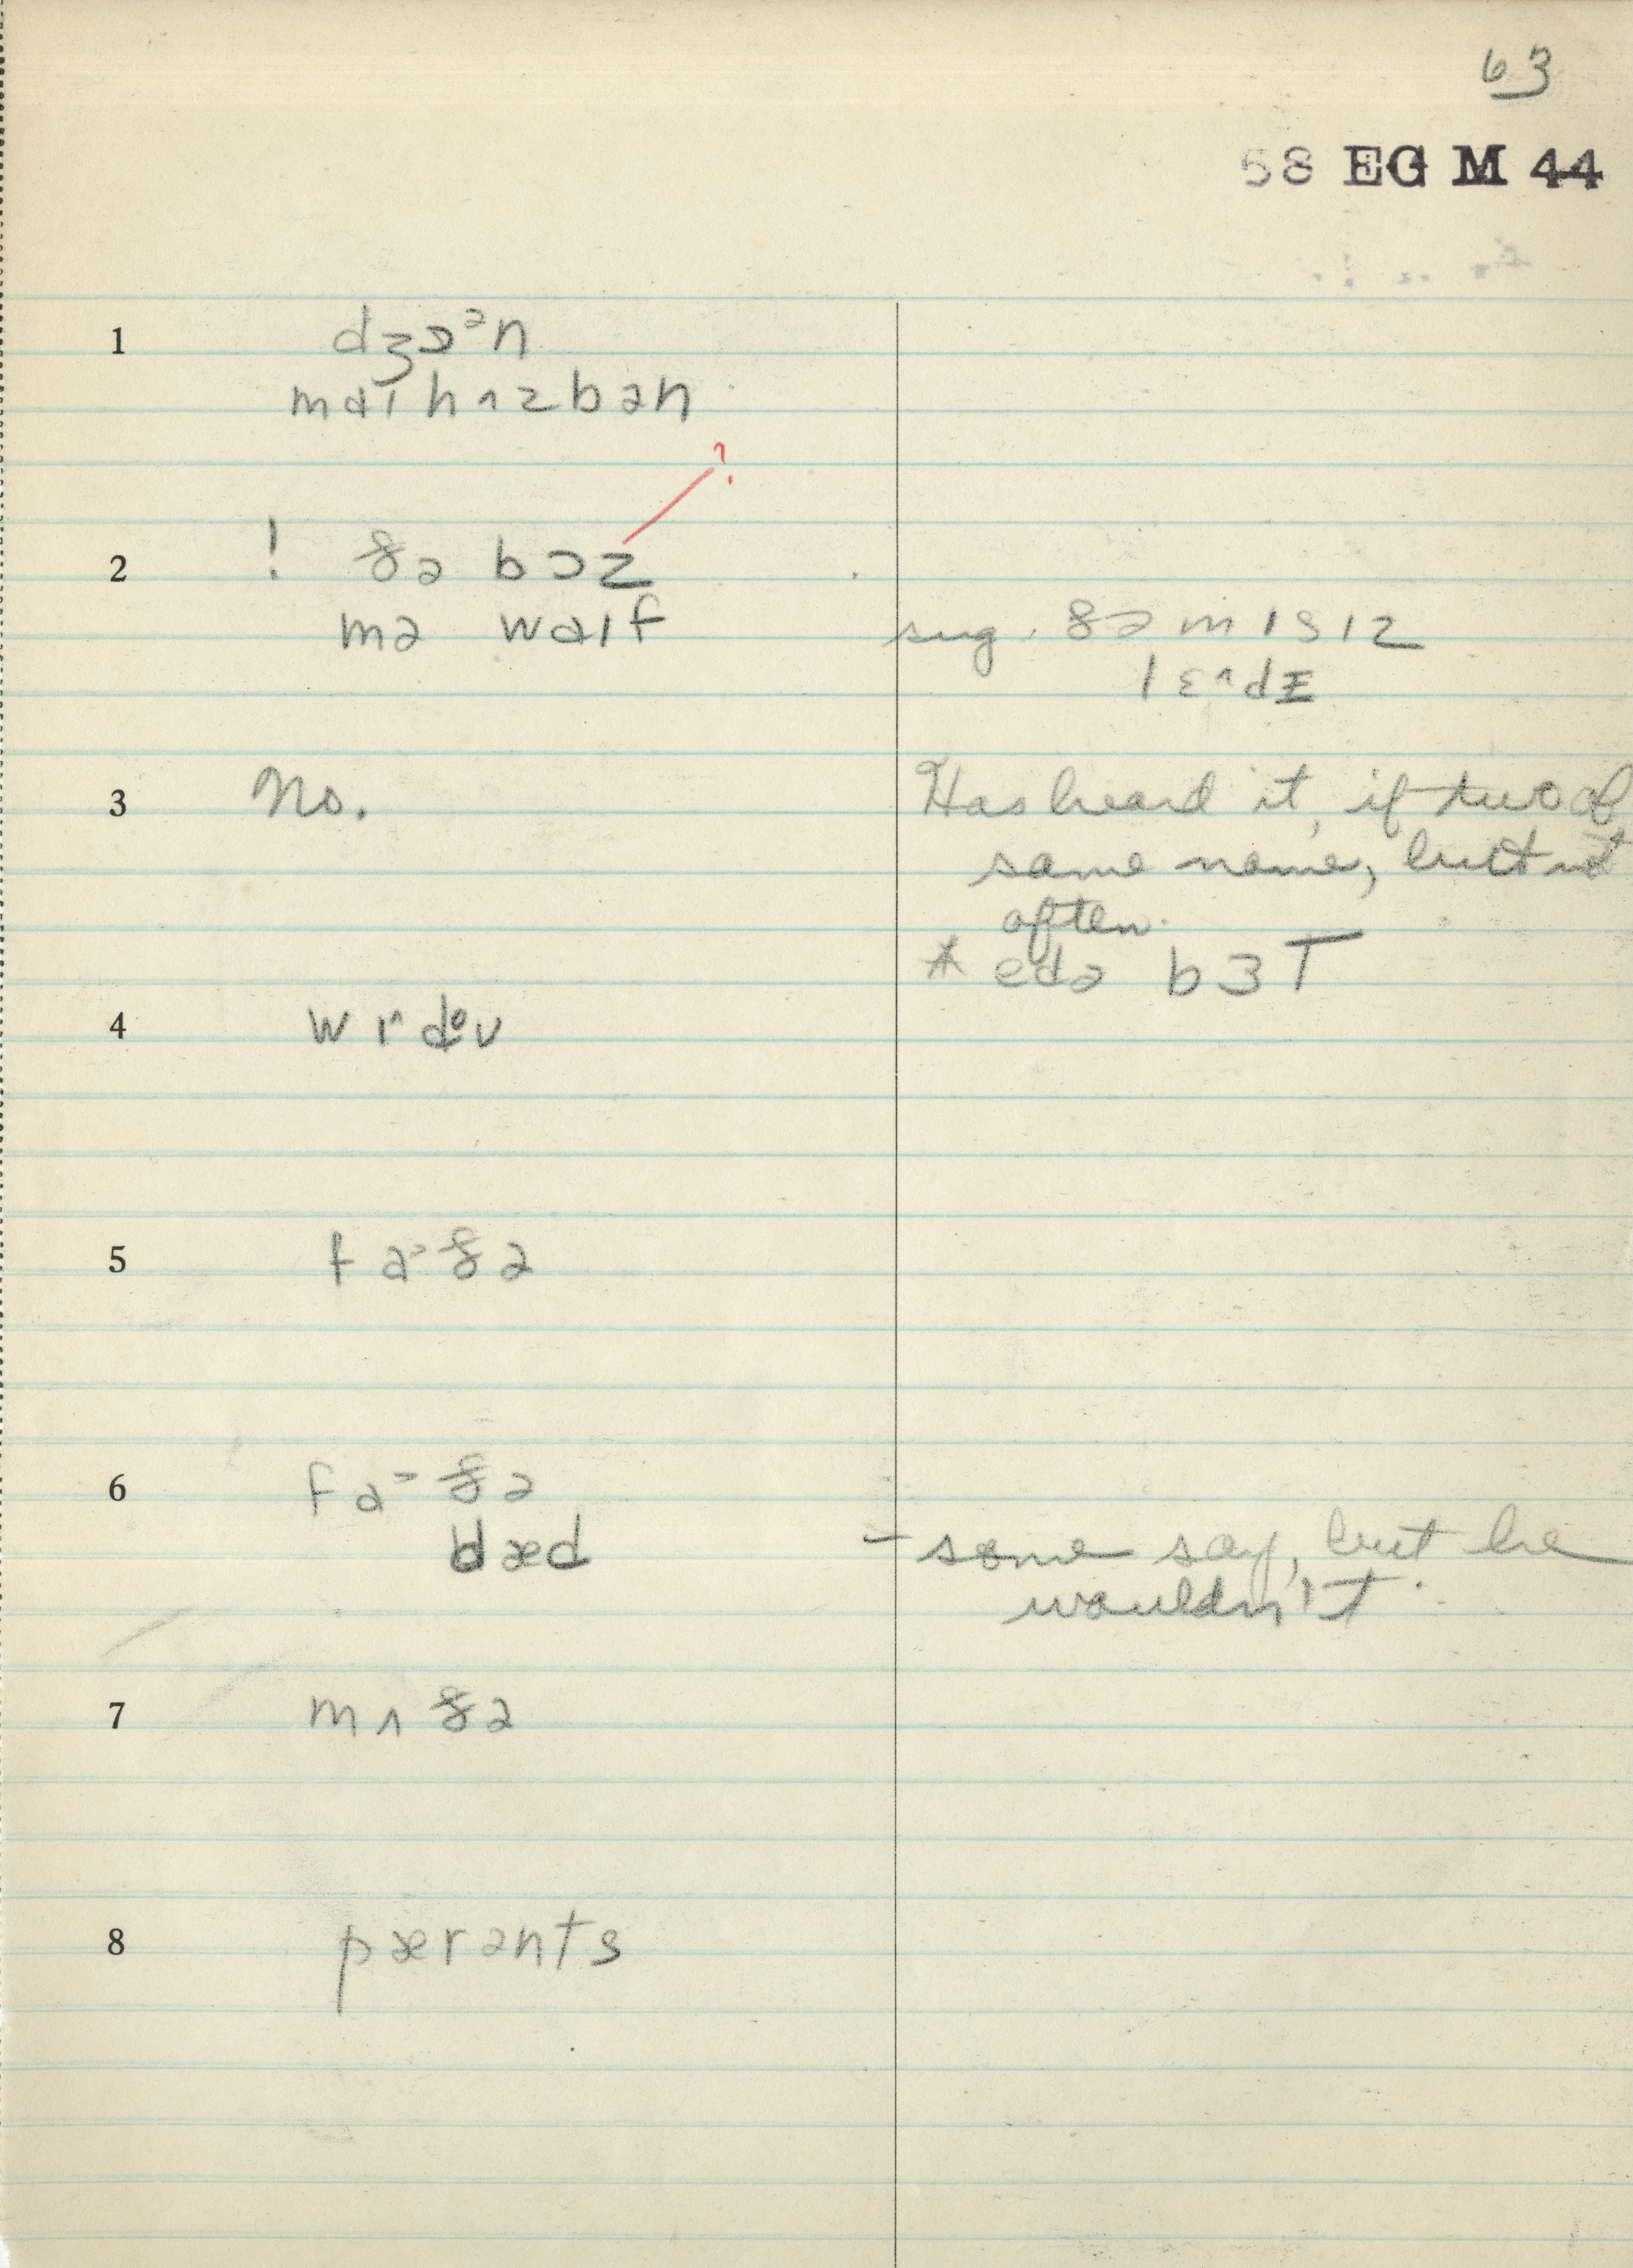 63
58 EG M 44
1 dʒɔᵊn
maɪ hʌzbən
?
2 ! ðə bɔz
mə waɪf
sug. ðə mɪsɪz
3 No.
Has heard it, if two of
same name, but not
often.
* edə bɜT
4
5 fa˃ðə
6 fa˃ðə
dæd – some say, but he
wouldn't.
7 mʌðə
8 pærənts